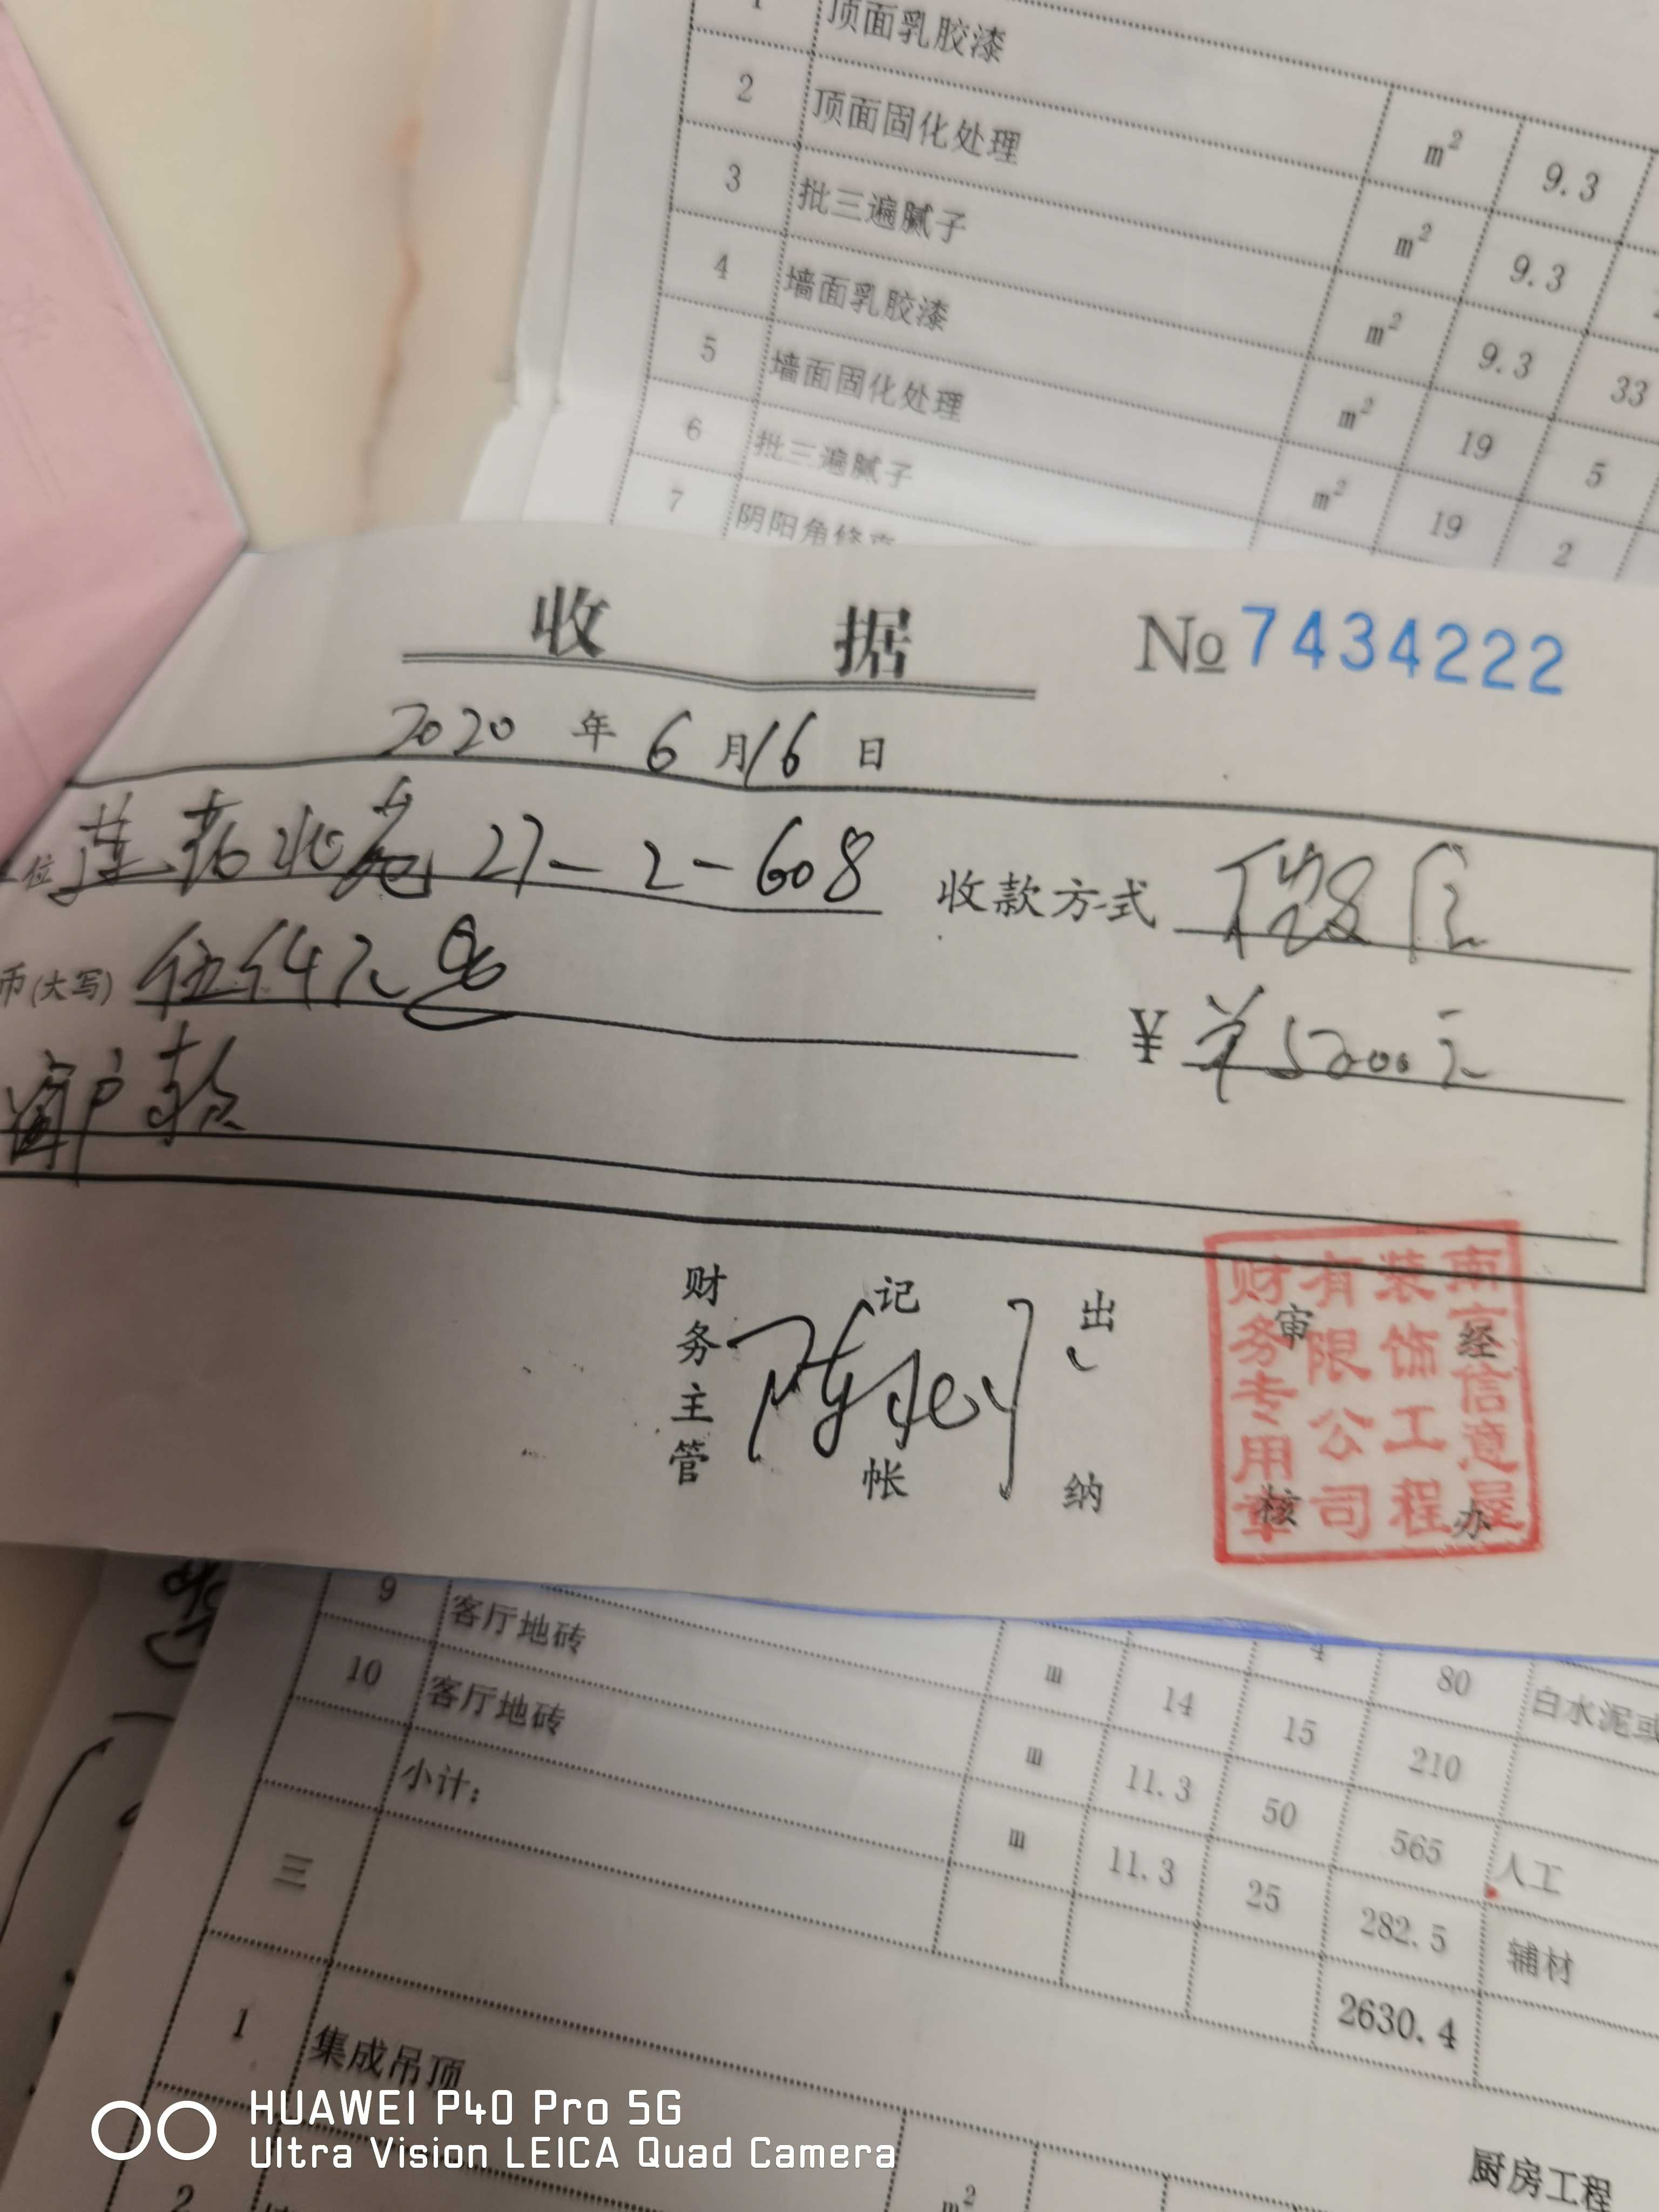 1 顶面乳胶漆
2 顶面固化处理 m² 9.3
3 批三遍腻子 m² 9.3
4 墙面乳胶漆 m² 9.3 33
5 墙面固化处理 m² 19 5
6 批三遍腻子 m² 19 2
7 阴阳角修
收 据 №7434222
2020 年 6 月 16 日
位 莲花北苑 27-2-608 收款方式 微信
币(大写) 伍仟元 ¥ 5200元
窗户款
财务主管 记帐 出纳 审核 经办
南京信意屋
装饰工程
有限公司
财务专用章
9 客厅地砖 m 14 4 80 白水泥或
10 客厅地砖 m 11.3 15 210
小计: m 11.3 50 565 人工
三 25 282.5 辅材
2630.4
1 集成吊顶
厨房工程
2 m²
HUAWEI P40 Pro 5G
Ultra Vision LEICA Quad Camera